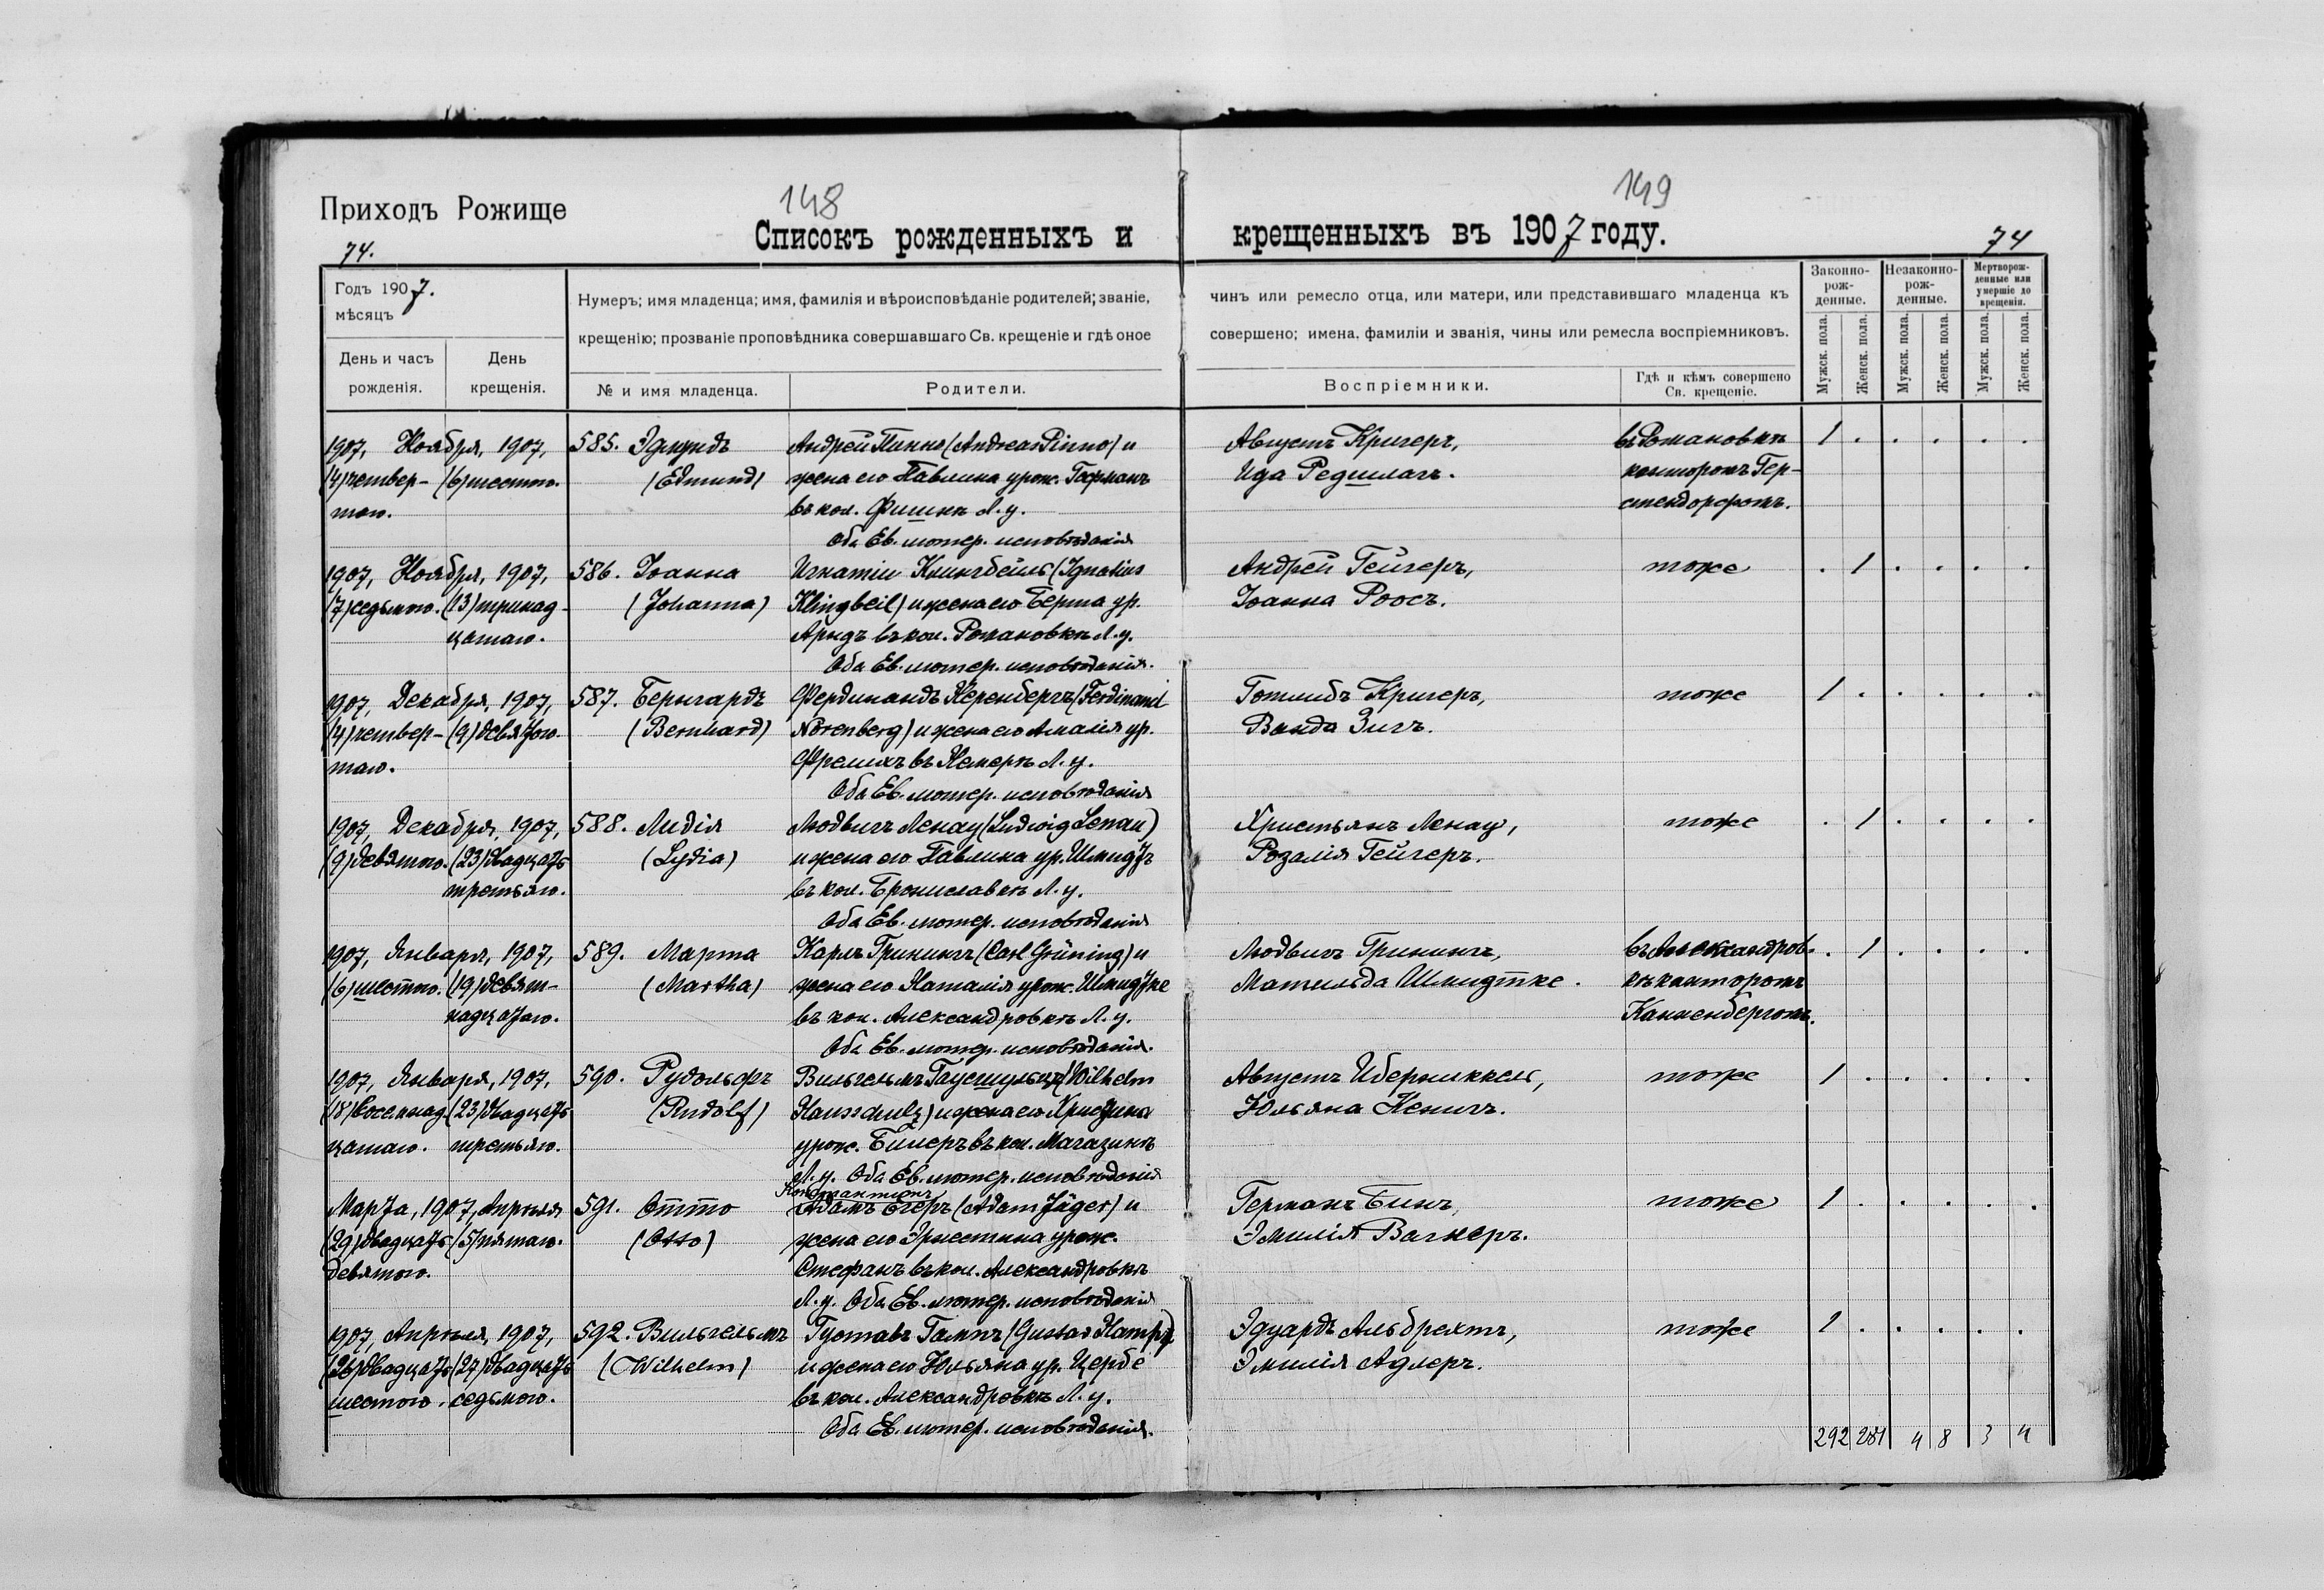 148
149
Приходъ Рожище
74.
Списокъ рожденныхъ и
крещенныхъ въ 1907 году.
74
Годъ 1907.
мѣсяцъ
День и часъ
рожденія.
День
крещенія.
Нумеръ; имя младенца; имя, фамилія и вѣроисповѣданіе родителей; званіе,
крещенію; прозваніе проповѣдника совершавшаго Св. крещеніе и гдѣ оное
№ и имя младенца.
Родители.
чинъ или ремесло отца, или матери, или представившаго младенца къ
совершено; имена, фамиліи и званія, чины или ремесла воспріемниковъ.
Воспріемники.
Гдѣ и кѣмъ совершено
Св. крещеніе.
Законно-
рож-
денные.
Незаконно-
рож-
денные.
Мертворож-
денные или
умершіе до
крещенія.
Мужск. пола.
Женск. пола.
Мужск. пола.
Женск. пола.
Мужск. пола.
Женск. пола.
1907, Ноября, 1907,
(4) четвер-
таго.
(6) шестого.
585. Эдмундъ
(Edmund)
Андрей Пинно (Andreas Pinno) и
жена его Павлина урож. Гофманъ
въ кол. Фишкѣ Л. у.
Оба Ев. лютер. исповѣданія
Августъ Кригеръ,
Ида Редшлагъ.
въ Романовкѣ
канторомъ Гер-
стендорфомъ.
1 . . . . .
1907, Ноября, 1907,
(7) седьмого.
(13) тринад-
цатаго.
586. Іоанна
(Johanna)
Игнатіи Клингбейль (Ignatius
Klingbeil) и жена его Берта ур.
Арндъ въ кол. Романовкѣ Л. у.
Оба Ев. лютер. исповѣданія.
Андрей Гейгеръ,
Іоанна Роосъ.
тоже
. 1 . . . .
1907, Декабря, 1907,
(4) четвер-
таго.
(9) девятого.
587. Бернгардъ
(Bernhard)
Фердинандъ Неренбергъ (Ferdinand
Nörenberg) и жена его Амалія ур.
Фрелихъ въ Немеркѣ Л. у.
Оба Ев. лютер. исповѣданія
Готлибъ Кригеръ,
Ванда Зигъ.
тоже
1 . . . . .
1907, Декабря, 1907,
(9) девятого.
(23) двадцать
третьяго.
588. Лидія
(Lydia)
Людвигъ Ленау (Ludwig Lenau)
и жена его Павлина ур. Шмидтъ
въ кол. Брониславкѣ Л. у.
Оба Ев. лютер. исповѣданія
Христьянъ Ленау,
Розалія Гейгеръ.
тоже
. 1 . . . .
1907, Января, 1907,
(6) шестого.
(19) девят-
надцатаго.
589. Марта
(Martha)
Карлъ Гринингъ (Carl Grüning) и
жена его Наталія урож. Шмидтке
въ кол. Александровкѣ Л. у.
Оба Ев. лютер. исповѣданія.
Людвигъ Гринингъ,
Матильда Шмидтке.
въ Александров-
кѣ канторомъ
Канненбергомъ.
. 1 . . . .
1907, Января, 1907,
(18) восемнад-
цатаго.
(23) двадцать
третьяго.
590. Рудольфъ
(Rudolf)
Вильгельмъ Гаусшульцъ (Wilhelm
Hausschulz) и жена его Христина
урож. Билеръ въ кол. Магазинкѣ
Л. у. Оба Ев. лютер. исповѣданія
Августъ Иберниккель,
Юльяна Кенигъ.
тоже
1 . . . . .
Марта, 1907, Апрѣля
(29) двадцать
девятого.
(5) пятаго.
591. Отто
(Otto)
Константинъ
Адамъ Егеръ (Adam Jäger) и
жена его Эрнестина урож.
Стефанъ въ кол. Александровкѣ
Л. у. Оба Ев. лютер. исповѣданія
Германъ Бинъ,
Эмилія Вагнеръ.
тоже
1 . . . . .
1907, Апрѣля, 1907,
(26) двадцать
шестого.
(27) двадцать
седьмого.
592. Вильгельмъ
(Wilhelm)
Густавъ Гампъ (Gustav Hampf)
и жена его Юльяна ур. Цербе
въ кол. Александровкѣ Л. у.
Оба Ев. лютер. исповѣданія.
Эдуардъ Альбрехтъ,
Эмилія Адлеръ.
тоже
1 . . . . .
292 281 4 8 3 4